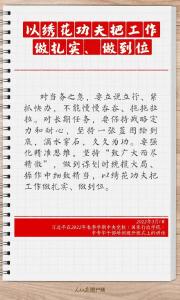 以绣花功夫把工作
做扎实、做到位
对当务之急，要立说立行、紧
抓快办，不能慢慢吞吞、拖拖拉
拉。对长期任务，要保持战略定
力和耐心，坚持一张蓝图绘到
底，滴水穿石，久久为功。要强
化精准思维，坚持“致广大而尽
精微”，做到谋划时统揽大局、
操作中细致精当，以绣花功夫把
工作做扎实、做到位。
2022年3月1日
习近平在2022年春季学期中央党校（国家行政学院）
中青年干部培训班开班式上的讲话